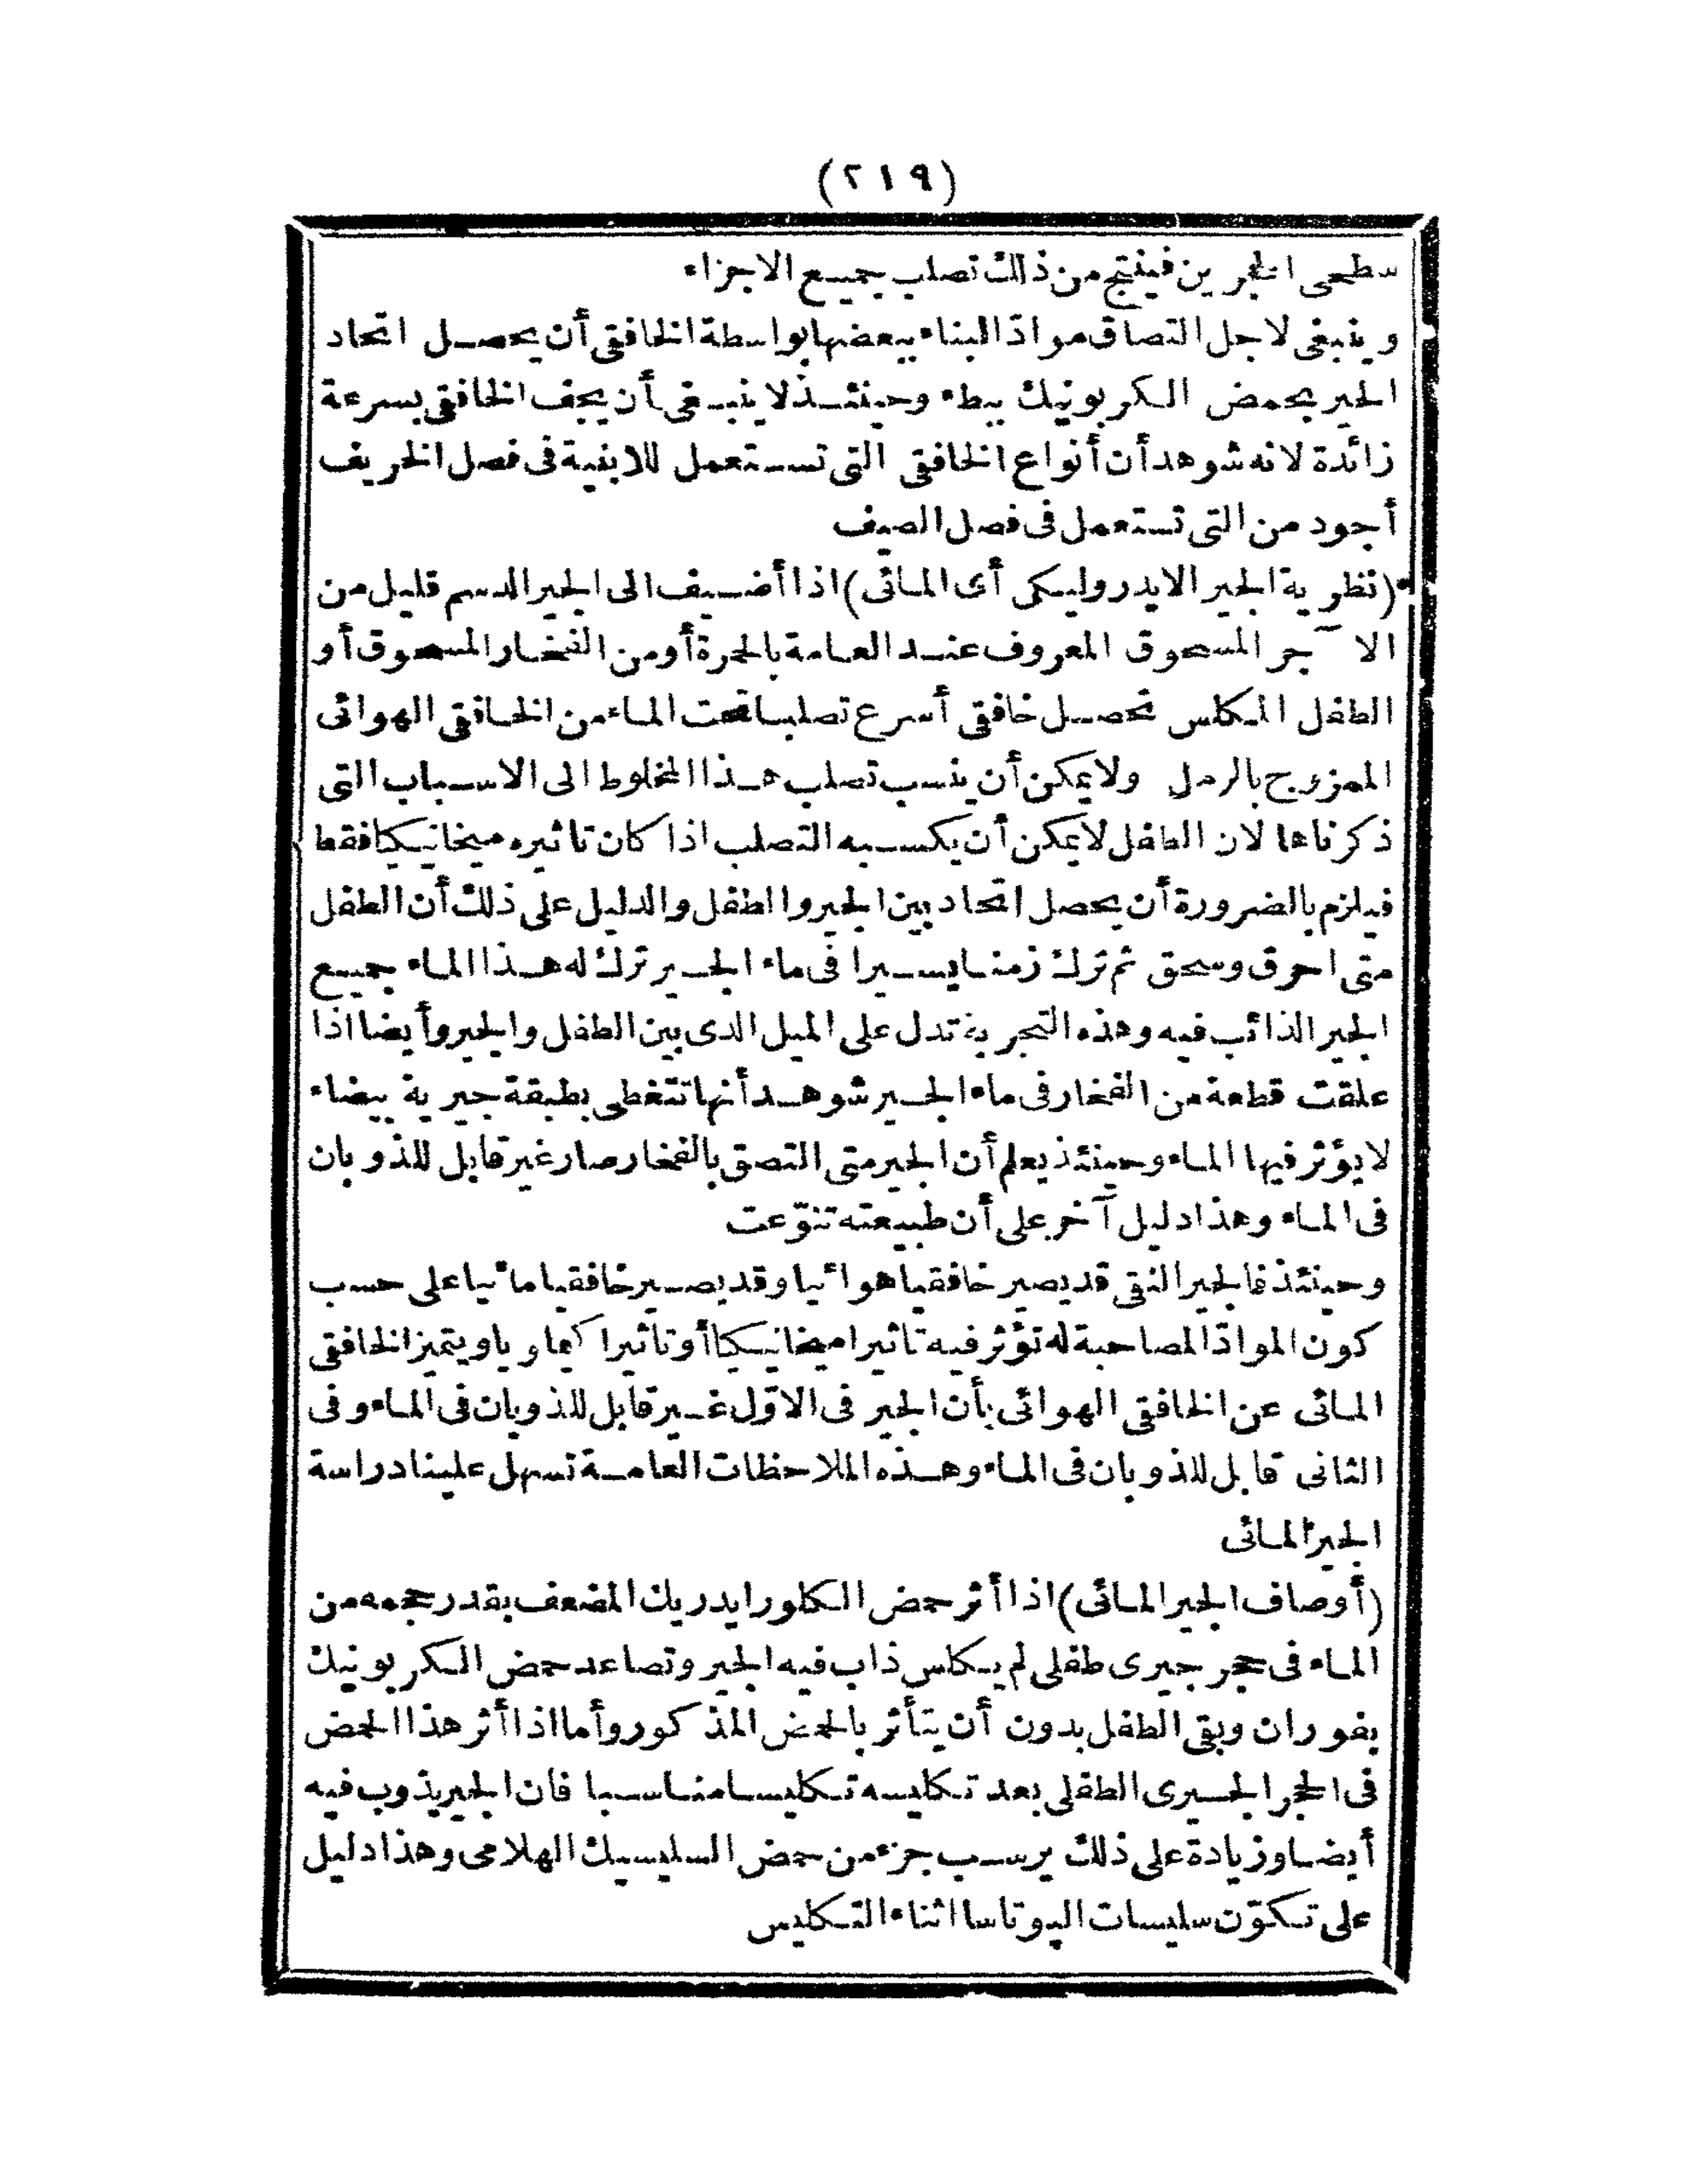 (٢١٩)
سطحى الحجرين فينتج من ذلك تصلب جميع الاجزاء
وينبغى لاجل التصاق موادّ البناء ببعضها بواسطة الخافقى أن يحصل اتحاد
الجير بحمض الكربونيك ببطء وحينئذ لا ينبغى أن يجف الخافقى بسرعة
زائدة لانه شوهد أن أنواع الخافقى التى تستعمل للابنية فى فصل الخريف
أجود من التى تستعمل فى فصل الصيف
(نظرية الجير الايدروليكى أى المائى) اذا أضيف الى الجير الدسم قليل من
الآجر المسحوق المعروف عند العامة بالحمرة أو من الفخار المسحوق أو
الطفل المكلس تحصل خافقى أسرع تصلبا تحت الماء من الخافقى الهوائى
الممزوج بالرمل ولا يمكن أن ينسب تصلب هذا المخلوط الى الاسباب التى
ذكرناها لان الطفل لا يمكن أن يكسبه التصلب اذا كان تاثيره ميخانيكيا فقط
فيلزم بالضرورة أن يحصل اتحاد بين الجير والطفل والدليل على ذلك أن الطفل
متى احرق وسحق ثم ترك زمنا يسيرا فى ماء الجير ترك له هذا الماء جميع
الجير الذائب فيه وهذه التجربة تدل على الميل الذى بين الطفل والجير وأيضا اذا
علقت قطعة من الفخار فى ماء الجير شوهد أنها تتغطى بطبقة جيرية بيضاء
لا يؤثر فيها الماء وحينئذ يعلم أن الجير متى التصق بالفخار صار غير قابل للذوبان
فى الماء وهذا دليل آخر على أن طبيعته تنوّعت
وحينئذ فالجير النقى قد يصير خافقيا هوائيا وقد يصير خافقيا مائيا على حسب
كون الموادّ المصاحبة له تؤثر فيه تاثيرا ميخانيكيا أو تاثيرا كيماويا ويتميز الخافقى
المائى عن الخافقى الهوائى بأن الجير فى الاوّل غير قابل للذوبان فى الماء وفى
الثانى قابل للذوبان فى الماء وهذه الملاحظات العامة تسهل علينا دراسة
الجير المائى
(أوصاف الجير المائى) اذا أثر حمض الكلورايدريك المضعف بقدر حجمه من
الماء فى حجر جيرى طفلى لم يكلس ذاب فيه الجير وتصاعد حمض الكربونيك
بفوران وبقى الطفل بدون أن يتأثر بالحمض المذكور وأما اذا أثر هذا الحمض
فى الحجر الجيرى الطفلى بعد تكليسه تكليسا مناسبا فان الجير يذوب فيه
أيضا وزيادة على ذلك يرسب جزء من حمض السليسيك الهلامى وهذا دليل
على تكوّن سليسات الپوتاسا اثناء التكليس